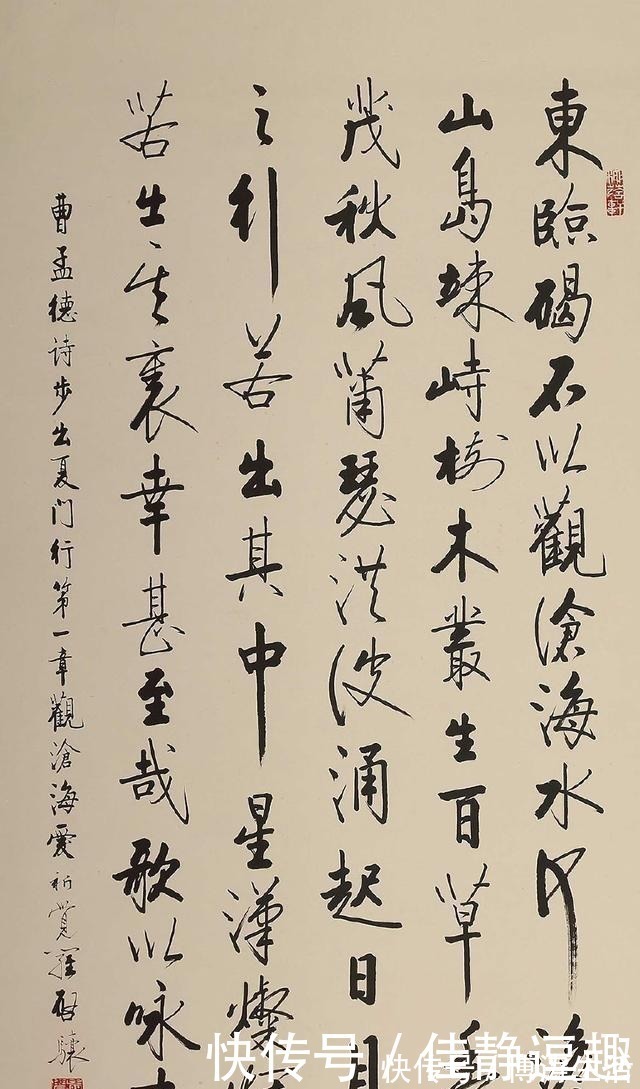 東臨碣石以觀滄海水何
山島竦峙樹木叢生百草
茂秋風蕭瑟洪波涌起日月
之行若出其中星漢燦
若出其裏幸甚至哉歌以咏
曹孟德诗步出夏门行第一章觀滄海愛新覺羅啟驤
快传号 / 佳静逗趣
快传号